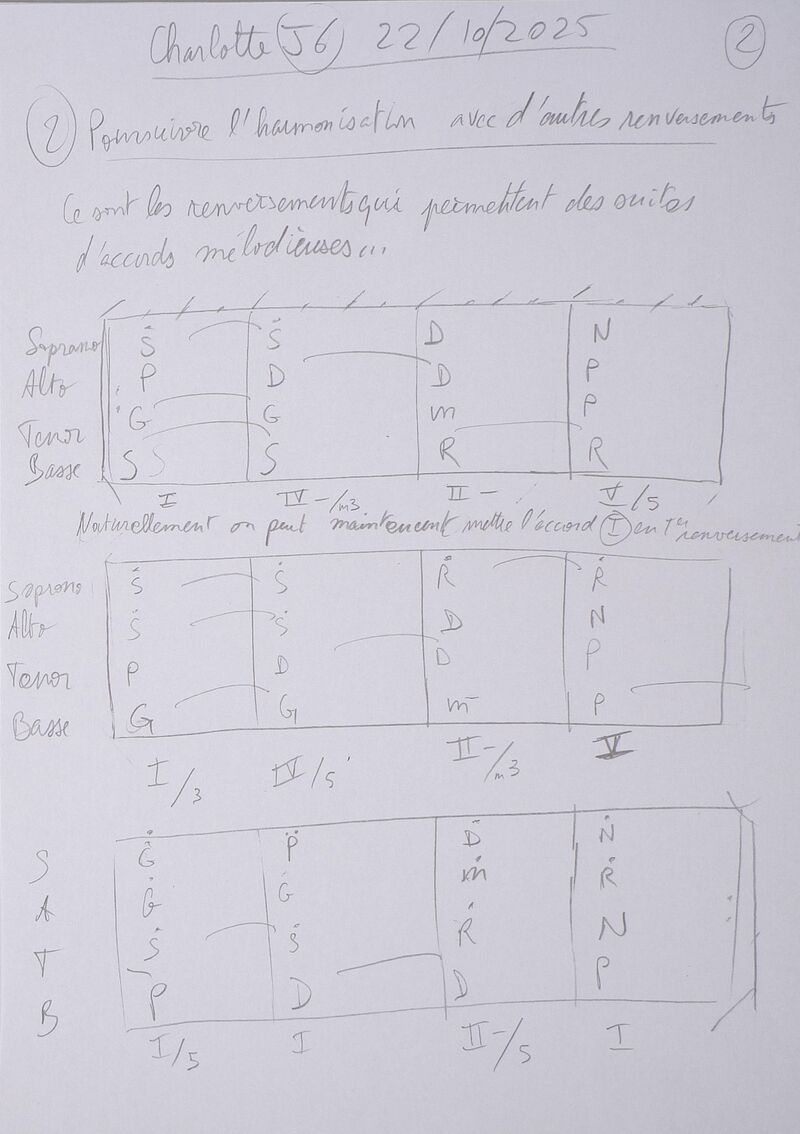 Charlotte J6 22/10/2025
2
2 Poursuivre l'harmonisation avec d'autres renversements
Ce sont les renversements qui permettent des suites
d'accords mélodieuses...
Soprano Ṡ Ṡ D N
Alto P D D P
Tenor G G m P
Basse S S R R
I IV-/m3 II- V/5
Naturellement on peut maintenant mettre l'accord I en 1er renversement
Soprano Ṡ Ṡ Ṙ Ṙ
Alto Ṡ Ṡ D N
Tenor P D D P
Basse G G m P
I/3 IV/5 II-/m3 V
S Ġ P̈ Ḋ Ṅ
A Ġ Ġ ṁ Ṙ
T Ṡ Ṡ Ṙ N
B P D D P
I/5 I II-/5 I